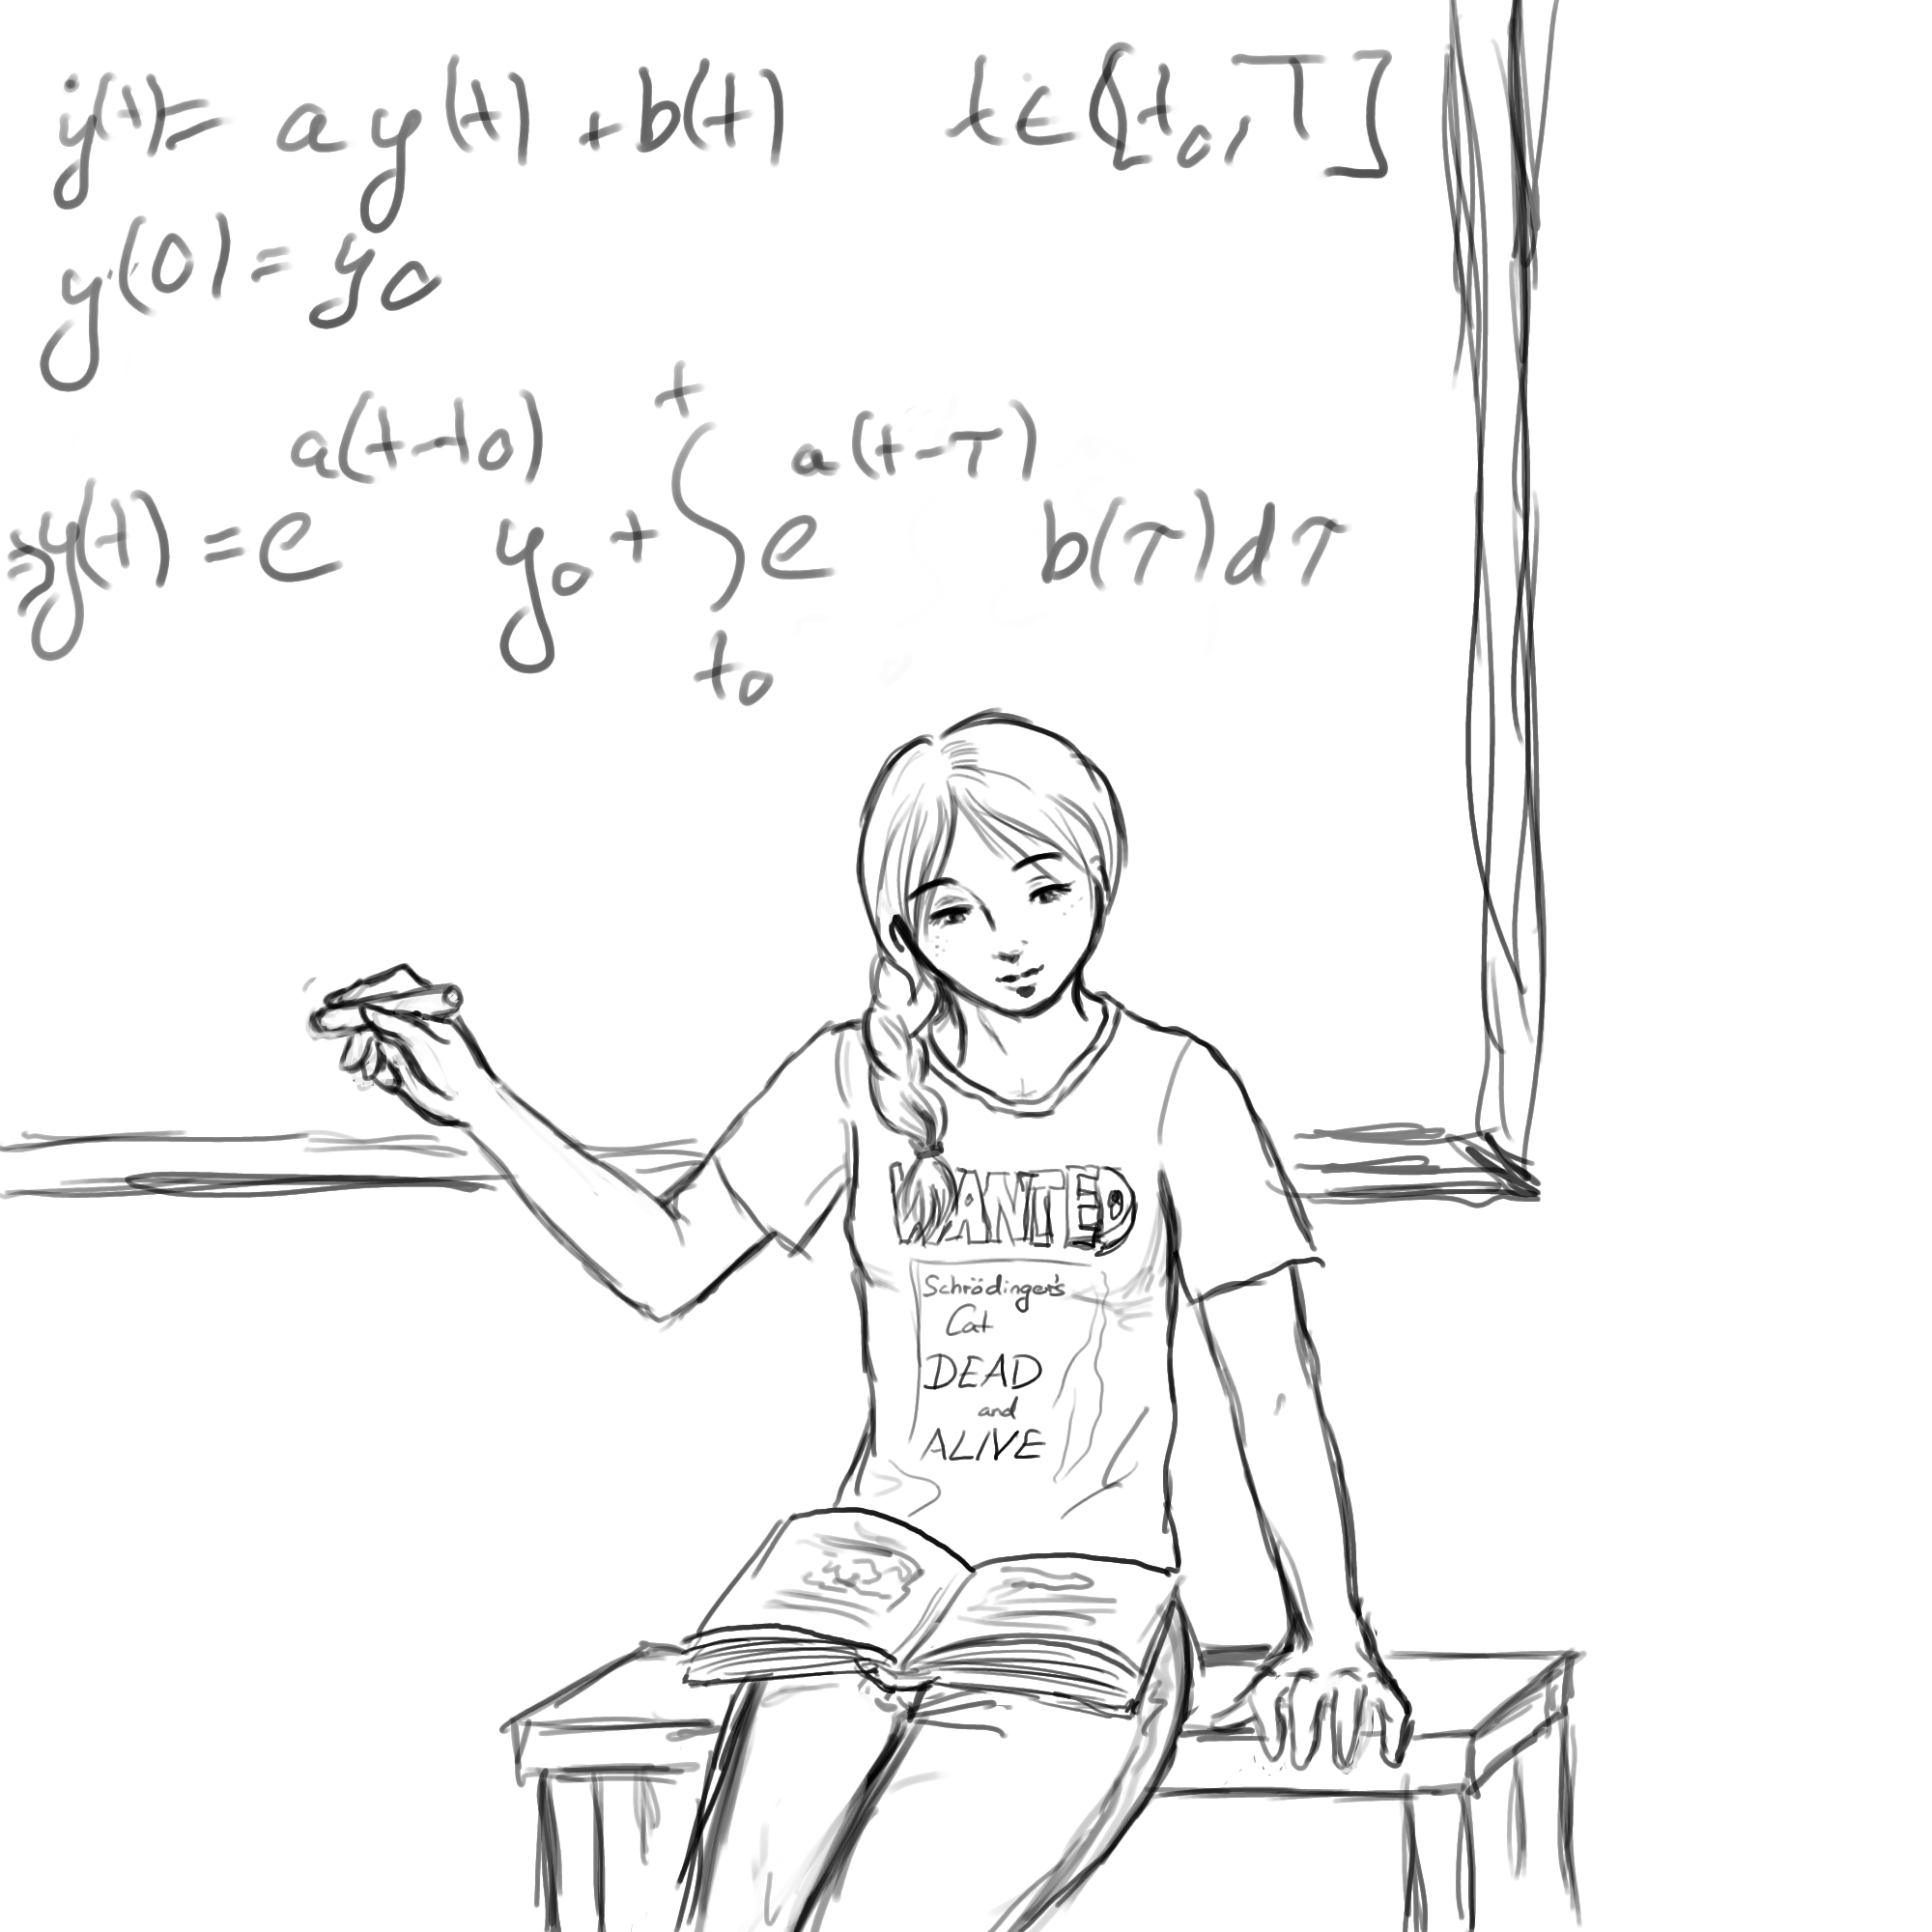 ẏ(t) = a y(t) + b(t) t ∈ [t₀, T]
y(0) = y₀
⇒ y(t) = e^{a(t-t₀)} y₀ + ∫_{t₀}^{t} e^{a(t-τ)} b(τ) dτ
WANTED
Schrödinger's
Cat
DEAD
and
ALIVE